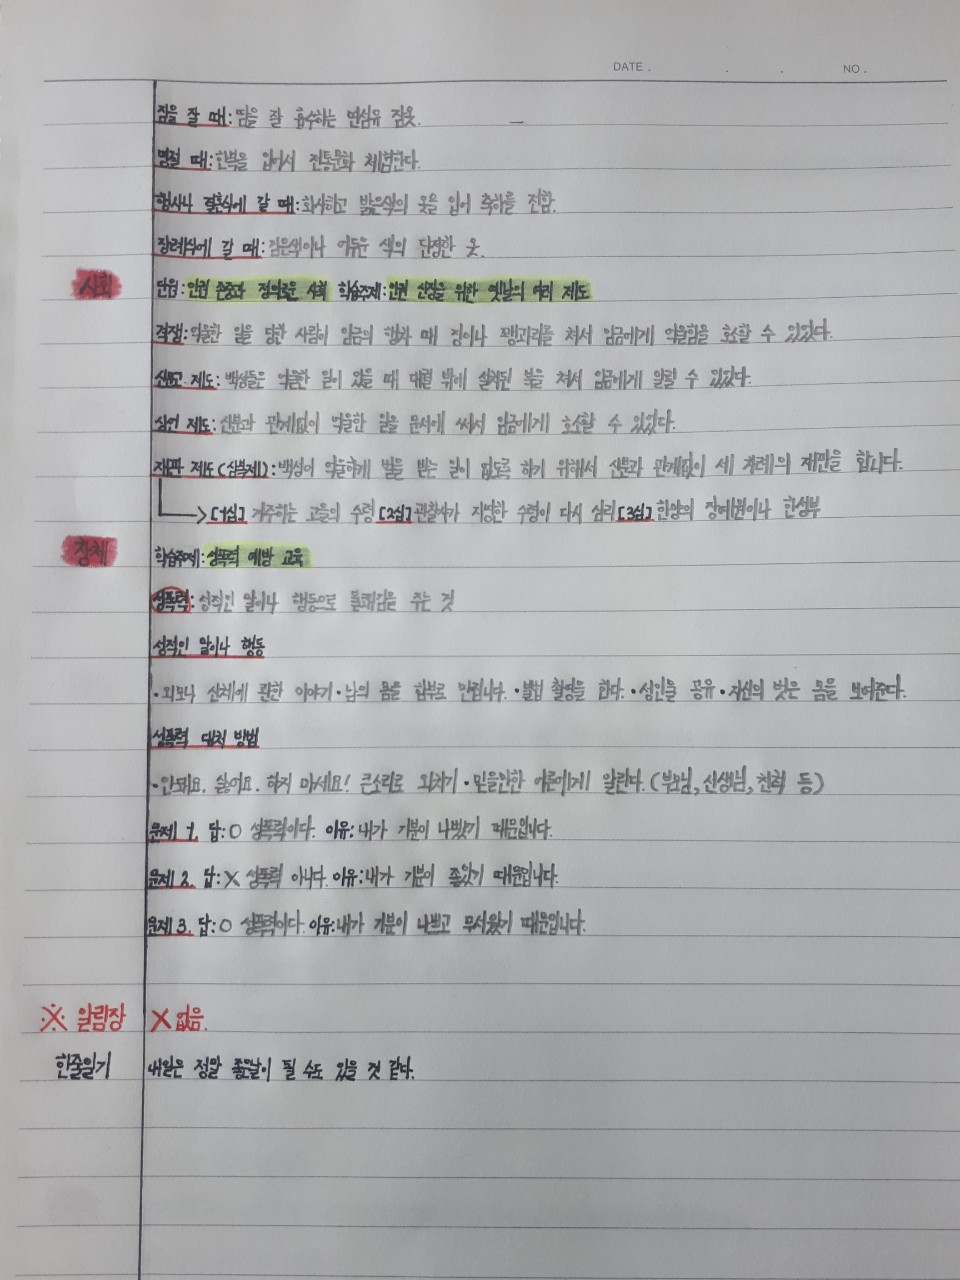 DATE . . . NO .
잠을 잘 때: 땀을 잘 흡수하는 면섬유 잠옷.
명절 때: 한복을 입어서 전통문화 체험한다.
행사나 결혼식에 갈 때: 화사하고 밝은색의 옷을 입어 축하를 전함.
장례식에 갈 때: 검은색이나 어두운 색의 단정한 옷.
사회 단원: 인권 존중과 정의로운 사회 학습주제: 인권 신장을 위한 옛날의 여러 제도
격쟁: 억울한 일을 당한 사람이 임금의 행차 때 징이나 꽹과리를 쳐서 임금에게 억울함을 호소할 수 있었다.
신문고 제도: 백성들은 억울한 일이 있을 때 대궐 밖에 설치된 북을 쳐서 임금에게 알릴 수 있었다.
상언 제도: 신분과 관계없이 억울한 일을 문서에 써서 임금에게 호소할 수 있었다.
재판 제도(삼복제): 백성이 억울하게 벌을 받는 일이 없도록 하기 위해서 신분과 관계없이 세 차례의 재판을 합니다.
[1심] 거주하는 고을의 수령 [2심] 관찰사가 지명한 수령이 다시 심리 [3심] 한양의 장예원이나 한성부
창체 학습주제: 성폭력 예방 교육
성폭력: 성적인 말이나 행동으로 불쾌감을 주는 것
성적인 말이나 행동
·외모나 신체에 관한 이야기 ·남의 몸을 함부로 만집니다. ·불법 촬영을 한다. ·성인물 공유 ·자신의 벗은 몸을 보여준다.
성폭력 대처 방법
·안돼요. 싫어요. 하지 마세요! 큰소리로 외치기 ·믿을만한 어른에게 알린다. (부모님, 선생님, 친척 등)
문제 1. 답: O 성폭력이다. 이유: 내가 기분이 나빴기 때문입니다.
문제 2. 답: X 성폭력 아니다. 이유: 내가 기분이 좋았기 때문입니다.
문제 3. 답: O 성폭력이다. 이유: 내가 기분이 나쁘고 무서웠기 때문입니다.
※ 알림장 X 없음.
한줄일기 내일은 정말 좋은날이 될 수도 있을 것 같다.